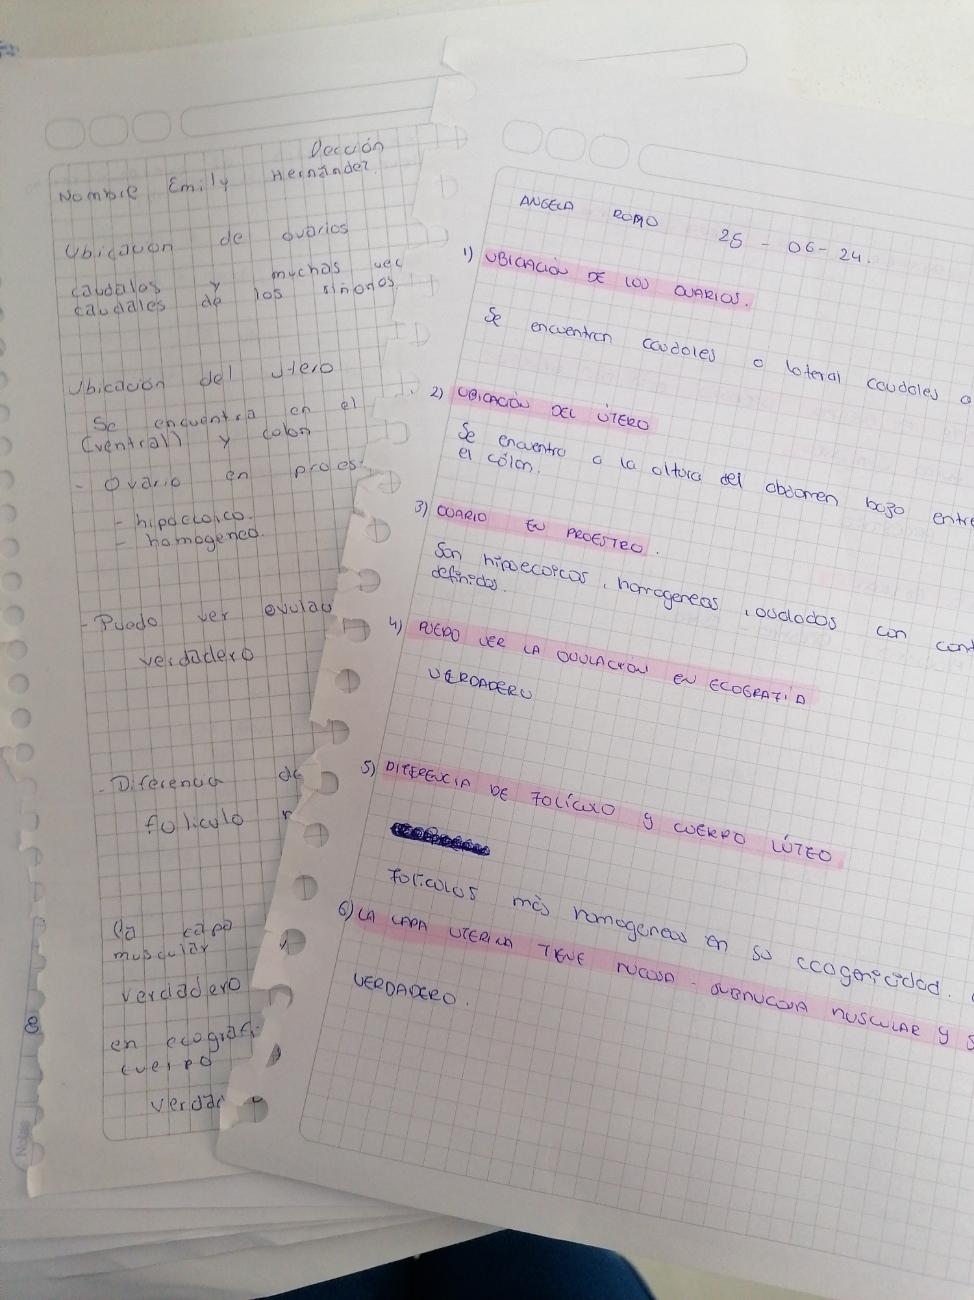 Lección
Nombre Emily Hernández
Ubicación de ovarios
caudales y muchas vec
caudales de los riñones
Ubicación del utero
Se encuentra en el
(ventral) y colon
- Ovario en proes
- hipoecoico.
- homogeneo.
- Puedo ver ovulac
verdadero
- Diferencia de
foliculo
la capa
muscular
verdadero
en ecografi
cuerpo
verdad
ANGELA ROMO 25 - 06 - 24.
1) UBICACIÓN DE LOS OVARIOS.
Se encuentran caudales o lateral caudales a
2) UBICACIÓN DEL ÚTERO
Se encuentra a la altura del abdomen bajo entre
el cólon.
3) OVARIO EN PROESTRO.
Son hipoecoicos, homogeneos, ovalados con cont
definidos.
4) PUEDO VER LA OVULACIÓN EN ECOGRAFÍA
VERDADERO
5) DIFERENCIA DE FOLÍCULO Y CUERPO LÚTEO
FOLICULOS más homogeneos en su ecogenicidad.
6) LA CAPA UTERINA TIENE MUCOSA - SUBMUCOSA MUSCULAR Y S
VERDADERO.